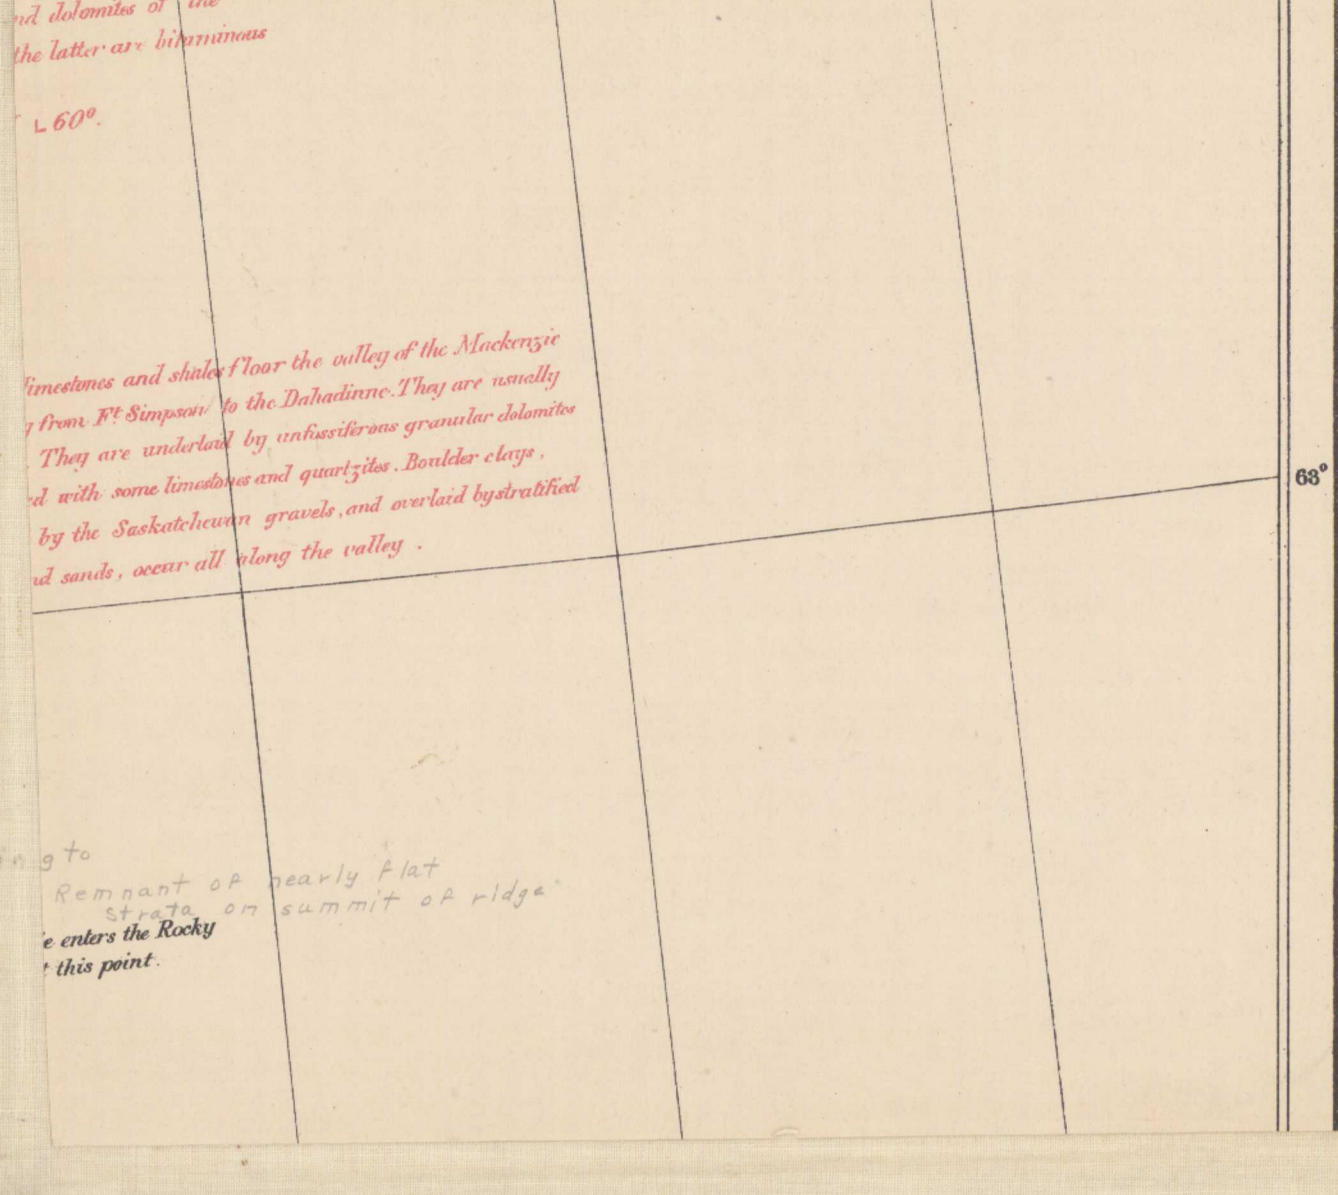 nd dolomites of the
the latter are bituminous
∟60°.
limestones and shales floor the valley of the Mackenzie
from Ft. Simpson to the Dahadinne. They are usually
They are underlaid by unfossiferous granular dolomites
ed with some limestones and quartzites. Boulder clays,
by the Saskatchewan gravels, and overlaid by stratified
nd sands, occur all along the valley.
63°
ng to
Remnant of nearly flat
strata on summit of ridge
e enters the Rocky
t this point.